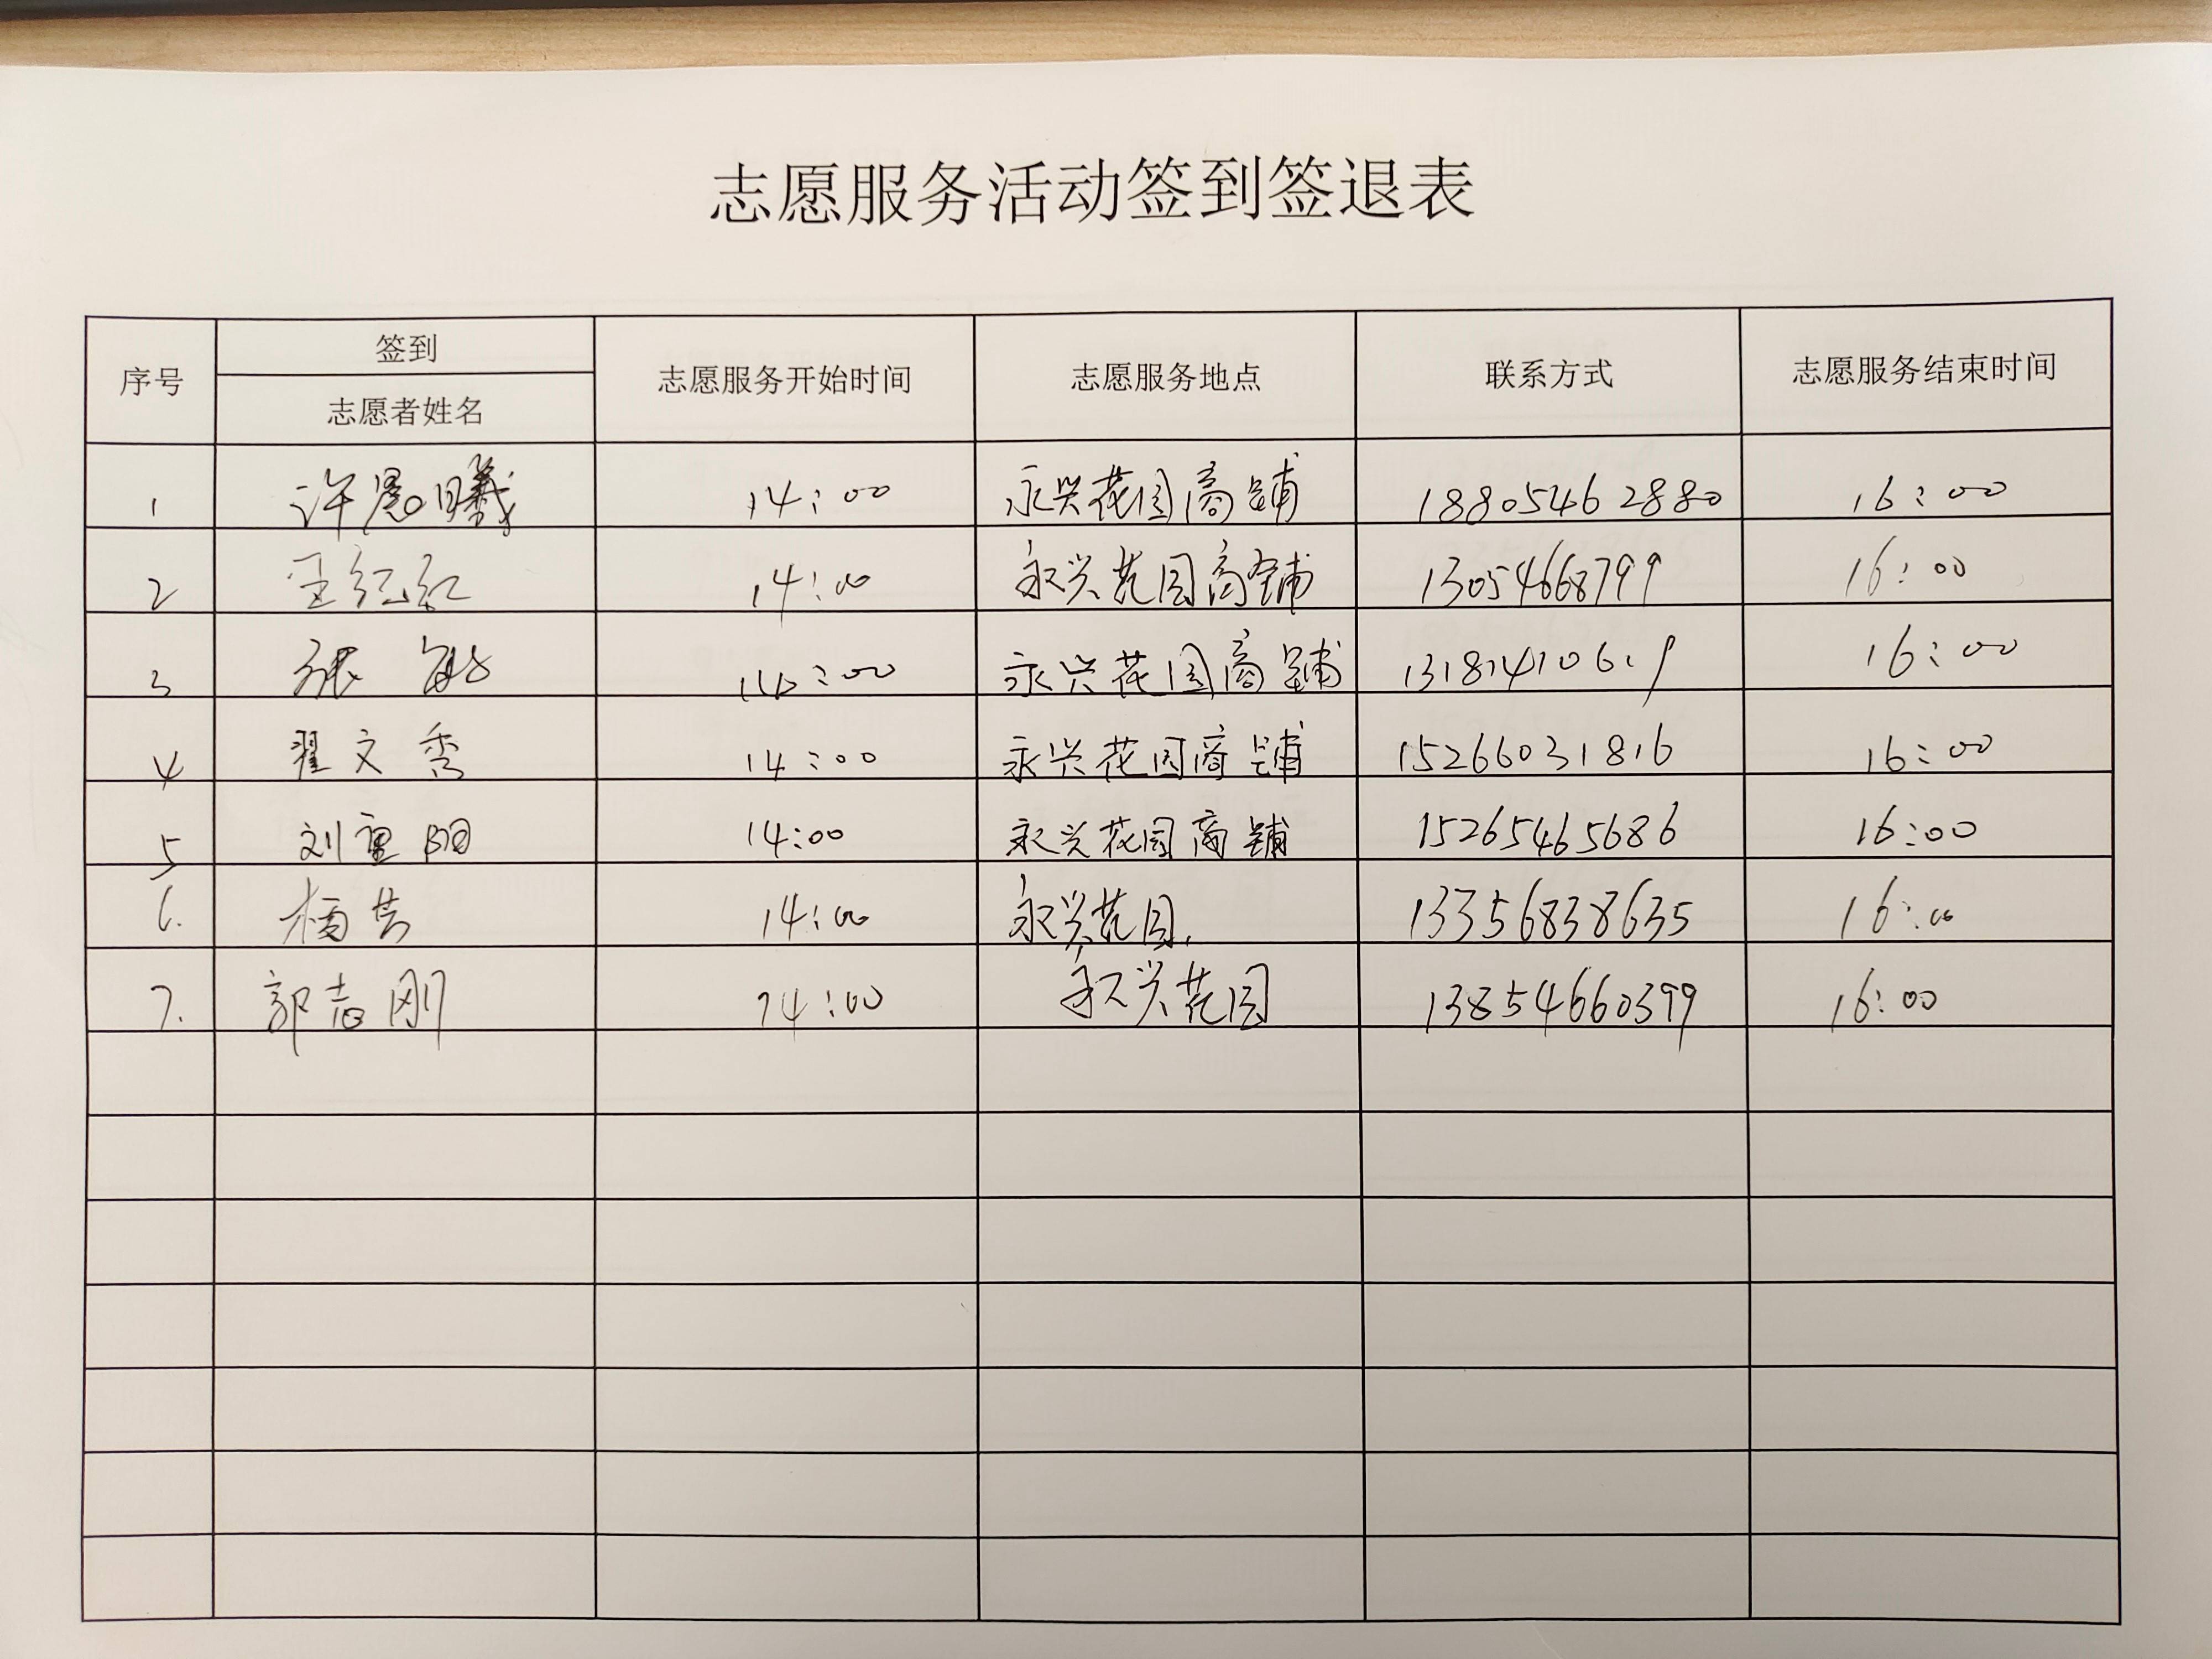 志愿服务活动签到签退表
序号 签到 志愿者姓名 志愿服务开始时间 志愿服务地点 联系方式 志愿服务结束时间
1 许愿曦 14:00 永兴花园商铺 18805462880 16:00
2 王红红 14:00 永兴花园商铺 13054668799 16:00
3 张敏 14:00 永兴花园商铺 16:00
4 翟文秀 14:00 永兴花园商铺 15266031816 16:00
5 刘重阳 14:00 永兴花园商铺 15265465686 16:00
6. 14:00 永兴花园. 13356838635 16:00
7. 郭志刚 14:00 永兴花园 13854660399 16:00